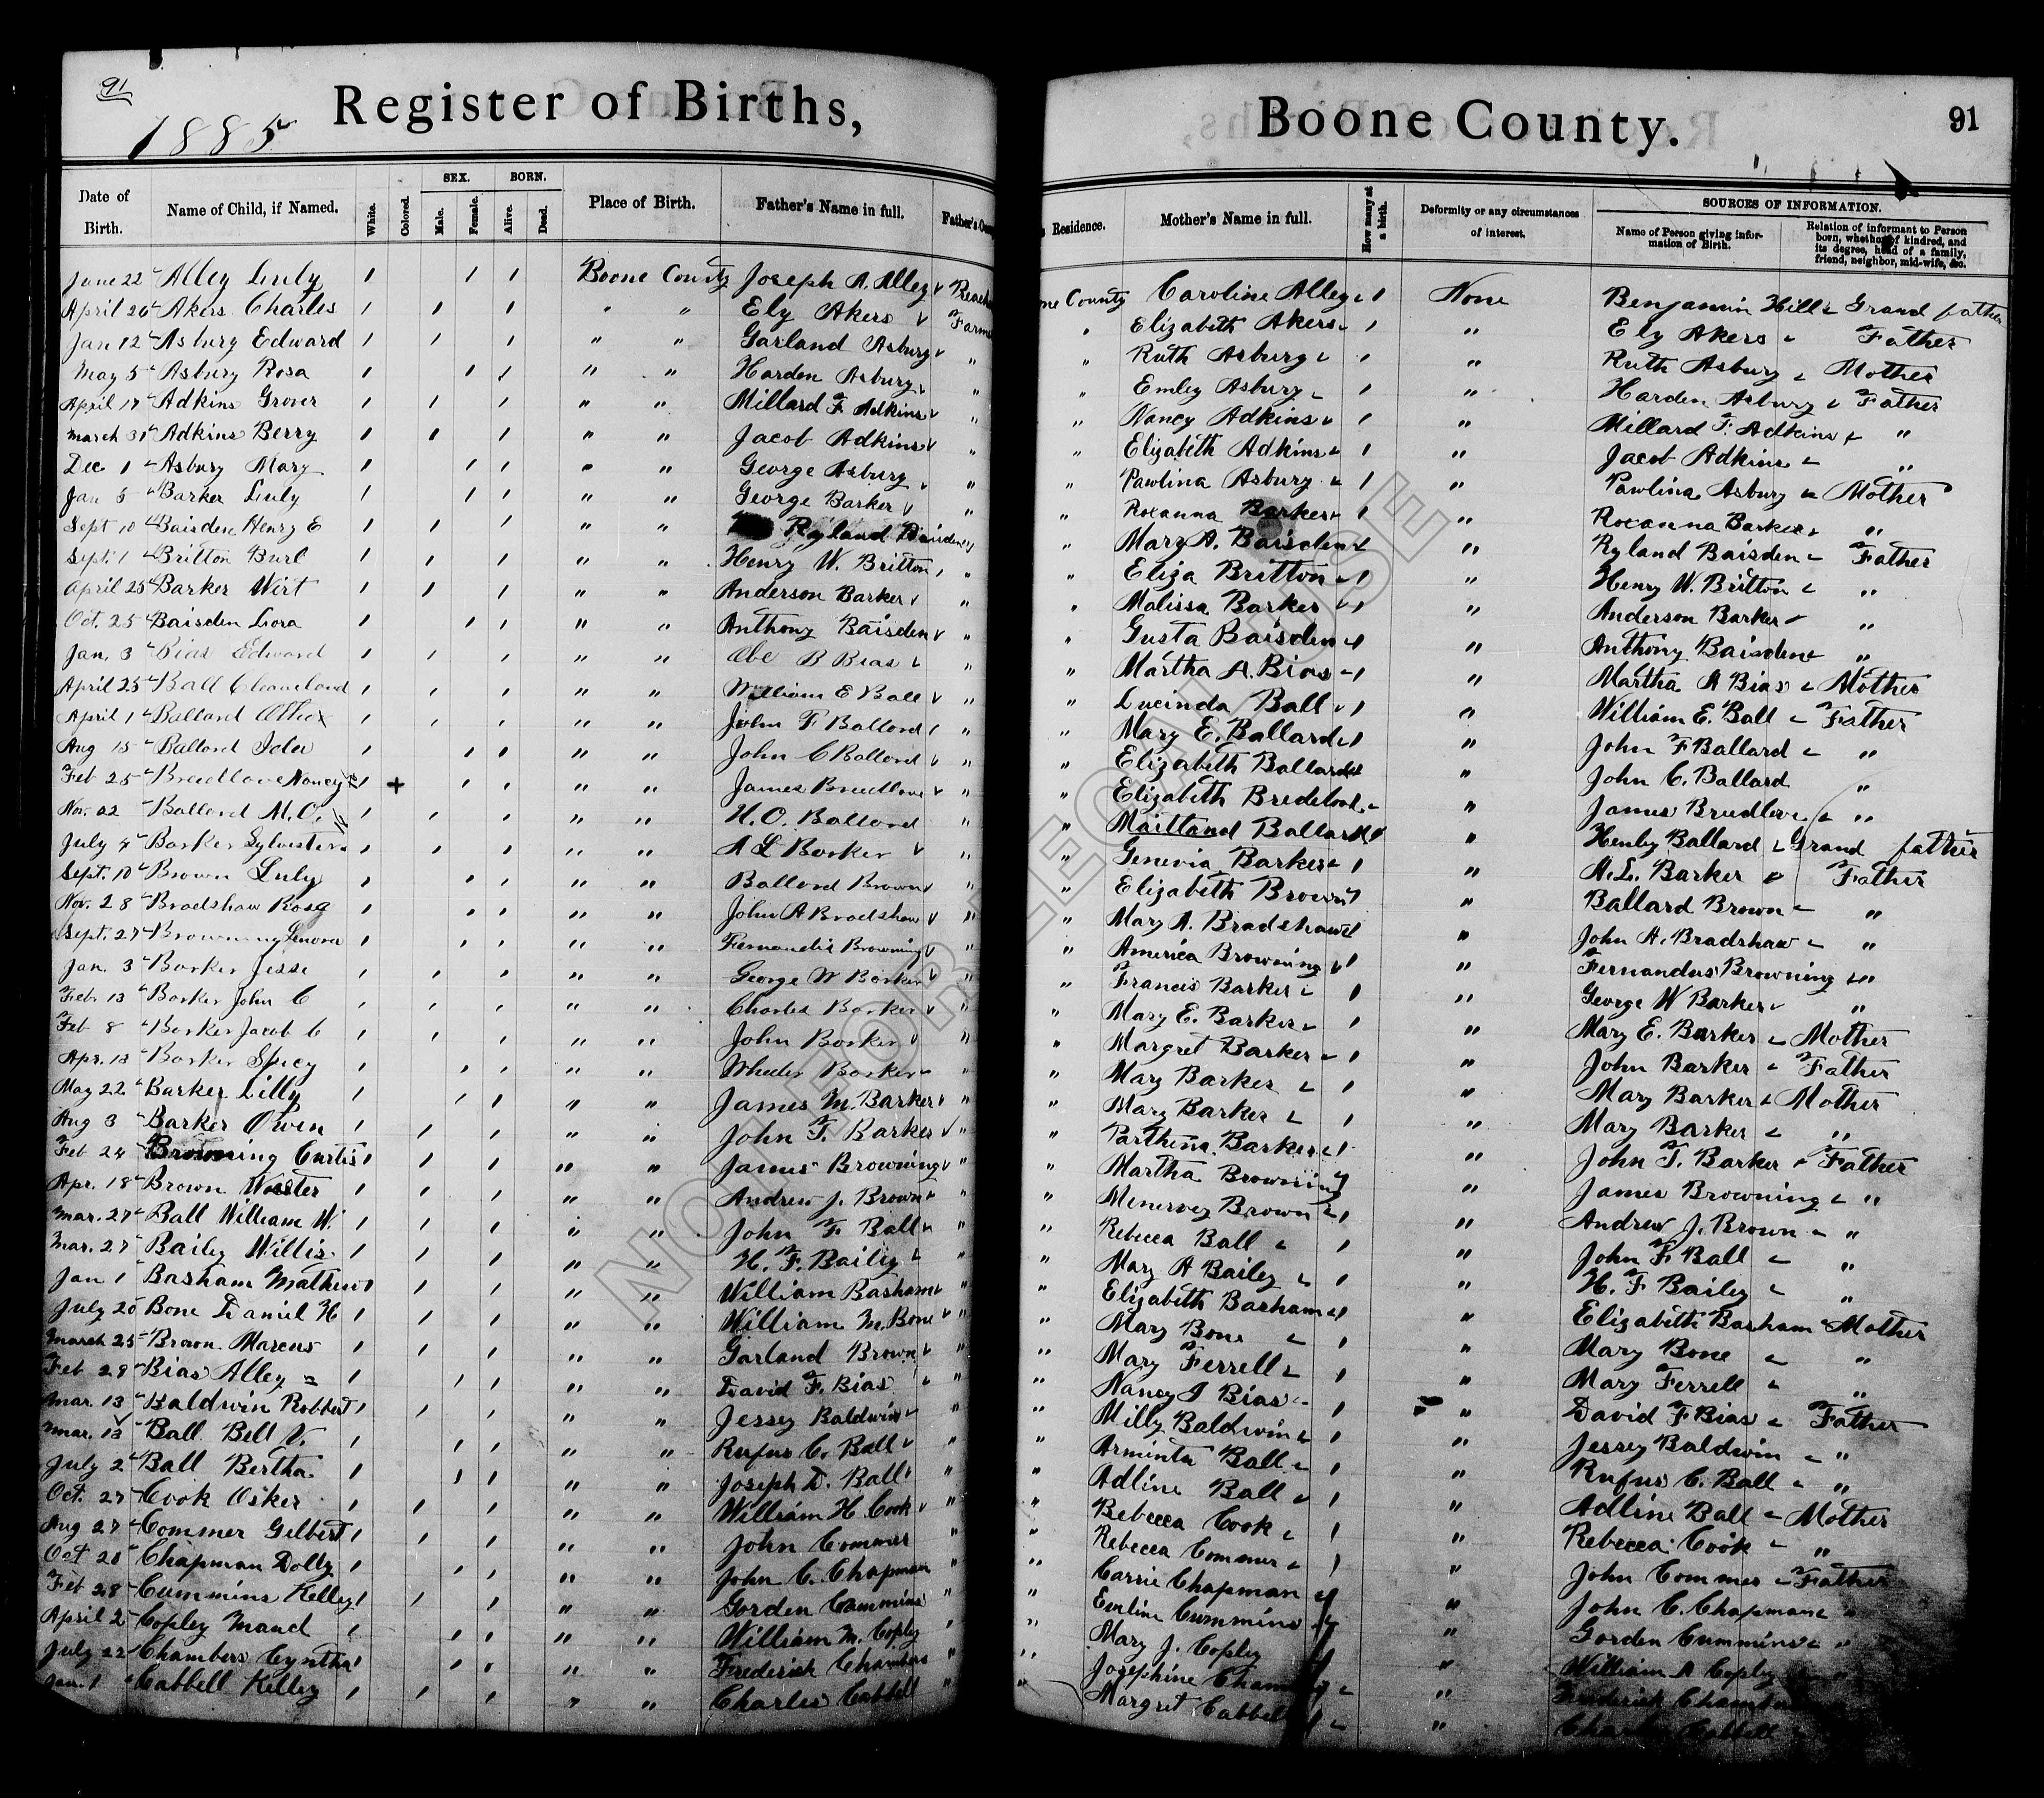 91
1885
Register of Births,
Boone County.
91
Date of Birth.
Name of Child, if Named.
White.
Colored.
SEX.
Male.
Female.
BORN.
Alive.
Dead.
Place of Birth.
Father's Name in full.
Residence.
Mother's Name in full.
How many at a birth.
Deformity or any circumstances of interest.
SOURCES OF INFORMATION.
Name of Person giving information of Birth.
Relation of informant to Person born, whether of kindred, and its degree, head of a family, friend, neighbor, mid-wife, &c.
June 22 Alley Luly Boone County Joseph A. Alley Caroline Alley 1 None Benjamin Hill Grand father
April 26 Akers Charles " " Ely Akers Elizabeth Akers 1 " Ely Akers Father
Jan 12 Asbury Edward " " Garland Asbury " Ruth Asbury 1 " Ruth Asbury Mother
May 5 Asbury Rosa " " Harden Asbury " Emley Asbury 1 " Harden Asbury Father
April 17 Adkins Grover " " Millard F Adkins " Nancy Adkins 1 " Millard F. Adkins "
March 31 Adkins Berry " " Jacob Adkins " Elizabeth Adkins 1 " Jacob Adkins "
Dec 1 Asbury Mary " " George Asbury " Pawlina Asbury 1 " Pawlina Asbury Mother
Jan 5 Barker Luly " " George Barker " Roxanna Barker 1 " Roxanna Barker "
Sept 10 Baisden Henry E " " Ryland Baisden " Mary A. Baisden 1 " Ryland Baisden Father
Sept. 1 Britton Burl " " Henry W. Britton " Eliza Britton 1 " Henry W. Britton "
April 25 Barker Wirt " " Anderson Barker " Malissa Barker 1 " Anderson Barker "
Oct. 25 Baisden Lora " " Anthony Baisden " Gusta Baisden 1 " Anthony Baisden "
Jan. 3 Bias Edward " " Abe B Bias " Martha A. Bias 1 " Martha A Bias Mother
April 25 Ball Cleaveland " " William E Ball " Lucinda Ball 1 " William E. Ball Father
April 1 Ballard " " John F Ballard " Mary E. Ballard 1 " John F Ballard "
Aug 15 Ballard Ider " " John C Ballard " Elizabeth Ballard 1 " John C. Ballard "
Feb 25 Breedlove Nancy + " " James Breedlove " Elizabeth " James Breedlove "
Nov. 22 Ballard M. O. " " H. O. Ballard " Maitland Ballard " Henley Ballard Grand father
July 4 Barker Sylvester " " A L Barker " Genevia Barker 1 " A. L. Barker Father
Sept. 10 Brown Luly " " Ballard Brown " Elizabeth Brown 1 " Ballard Brown "
Nov. 28 Bradshaw Rosa " " John A Bradshaw " Mary A. Bradshaw 1 " John A. Bradshaw "
Sept. 27 Browning Lenora " " Fernandis Browning " America Browning 1 " Fernandus Browning "
Jan. 3 Barker Jesse " " George W Barker " Francis Barker 1 " George W Barker "
Febr 13 Barker John C " " Charles Barker " Mary E. Barker 1 " Mary E. Barker Mother
Feb 8 Barker Jacob C " " John Barker " Margret Barker 1 " John Barker Father
Apr. 13 Barker Spicy " " Wheeler Barker " Mary Barker 1 " Mary Barker Mother
May 22 Barker Lilly " " James M. Barker " Mary Barker 1 " Mary Barker "
Aug 3 Barker Owen " " John T. Barker " Parthena Barker 1 " John T. Barker Father
Feb 24 Browning Curtis " " James Browning " Martha Browning " James Browning "
Apr. 18 Brown " " Andrew J. Brown " Menervey Brown 1 " Andrew J. Brown "
Mar. 27 Ball William W. " " John F Ball " Rebecca Ball 1 " John F Ball "
Mar. 27 Bailey Willis " " H. F. Bailey " Mary A Bailey 1 " H. F Bailey "
Jan 1 Basham Mathew " " William Basham " Elizabeth Basham 1 " Elizabeth Basham Mother
July 20 Bone Daniel H " " William M. Bone " Mary Bone 1 " Mary Bone "
March 25 Brown Marcus " " Garland Brown " Mary Ferrell 1 " Mary Ferrell "
Feb 28 Bias Alley " " David F. Bias " Nancy J Bias 1 " David F Bias Father
Mar. 13 Baldwin Robbert " " Jessey Baldwin " Milly Baldwin 1 " Jessey Baldwin "
Mar. 13 Ball Bell V. " " Rufus C. Ball " Arminta Ball 1 " Rufus C. Ball "
July 2 Ball Bertha " " Joseph D. Ball " Adline Ball 1 " Adline Ball Mother
Oct. 27 Cook Osker " " William H Cook " Rebecca Cook 1 " Rebecca Cook "
Aug 27 Commer Gilbert " " John Commer " Rebecca Commer 1 " John Commer Father
Oct 20 Chapman Dolly " " John C. Chapman " Carrie Chapman " John C. Chapman "
Feb 28 Cummins Kelley " " Gorden Cummins " Eveline Cummins " Gorden Cummins "
April 2 Copley Maud " " William M. Copley " Mary J. Copley " William A Copley "
July 22 Chambers Cyntha " " Frederick Chambers " Josephine " Frederick
Jan. 1 Cabbell Kelley " " Charles Cabbell " Margret Cabbell " Charles Cabbell
NOT FOR LEGAL USE